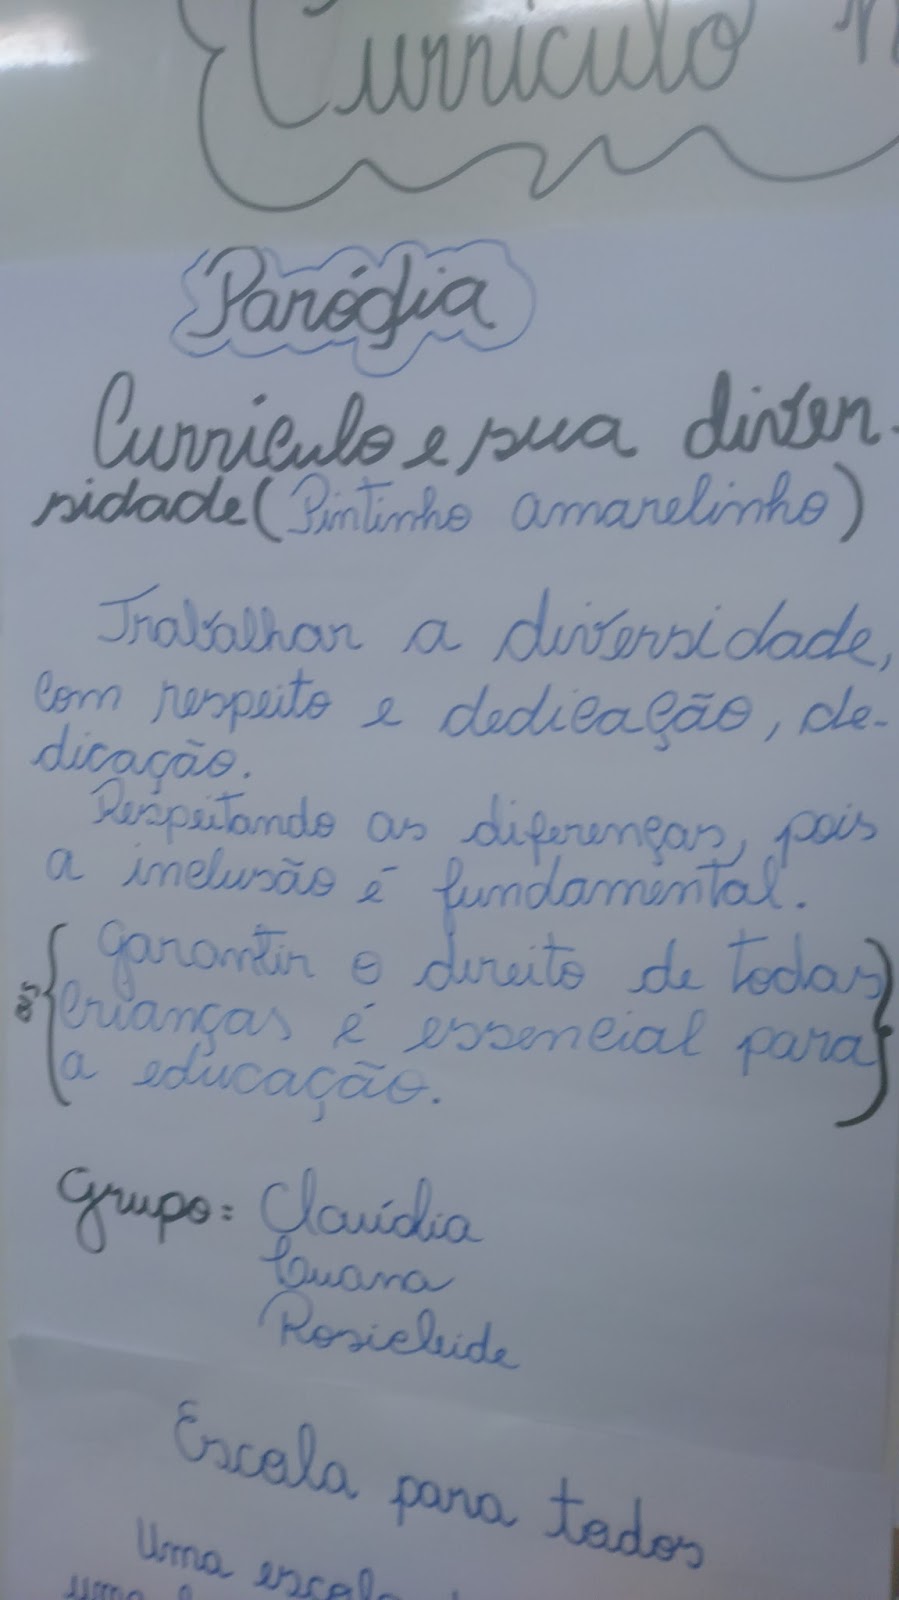 Currículo n
Paródia
Currículo e sua diver-
sidade (Pintinho amarelinho)
Trabalhar a diversidade,
com respeito e dedicação, de-
dicação.
Respeitando as diferenças, pois
a inclusão é fundamental.
Garantir o direito de todas
crianças é essencial para
a educação.
Grupo: Clauídia
Luana
Rosicleide
Escola para todos
Uma escola
uma